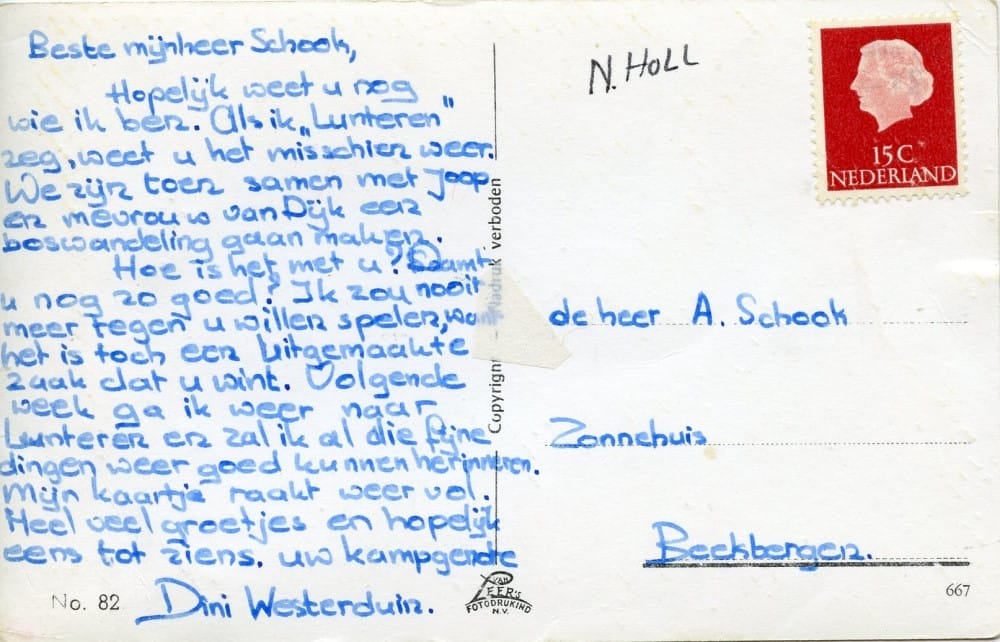 Beste mijnheer Schook,
Hopelijk weet u nog
wie ik ben. Als ik „Lunteren"
zeg, weet u het misschien weer.
We zijn toen samen met Joop
en mevrouw van Dijk een
boswandeling gaan maken.
Hoe is het met u? Damt
u nog zo goed? Ik zou nooit
meer tegen u willen spelen, want
het is toch een uitgemaakte
zaak dat u wint. Volgende
week ga ik weer naar
Lunteren en zal ik al die fijne
dingen weer goed kunnen herinneren.
Mijn kaartje raakt weer vol.
Heel veel groetjes en hopelijk
eens tot ziens. uw kampgenote
Dini Westerduin.
No. 82
Copyright - Nadruk verboden
VAN
LEER's
FOTODRUKIND
N.V.
N. HOLL
15 C
NEDERLAND
de heer A. Schook
Zonnehuis
Beekbergen.
667